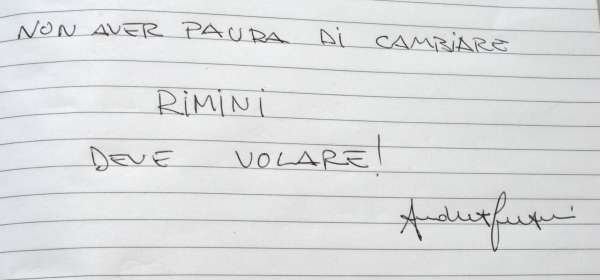 NON AVER PAURA DI CAMBIARE
RIMINI
DEVE VOLARE!